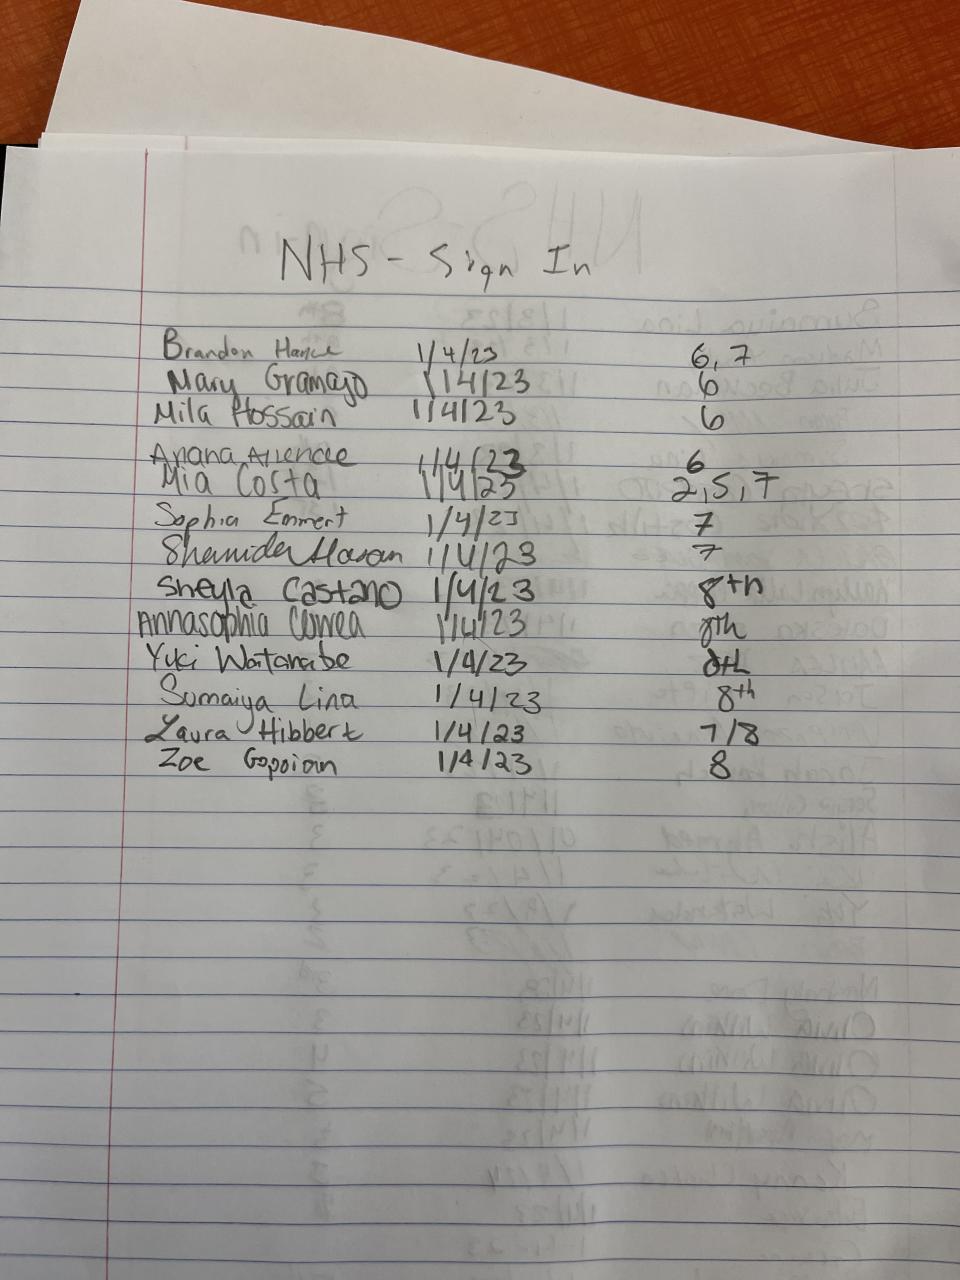 NHS - Sign In
Brandon Hance 1/4/23 6, 7
Mary Gramajo 1/4/23 6
Mila Hossain 1/4/23 6
1/4/23 6
Mia Costa 1/4/23 2,5,7
Sophia Emmert 1/4/23 7
Hasan 1/4/23 7
Sheyla Castano 1/4/23 8th
Annasophia Correa 1/4/23 8th
Yuki Watanabe 1/4/23 8th
Sumaiya Lina 1/4/23 8th
Laura Hibbert 1/4/23 7/8
Zoe Gopoian 1/4/23 8